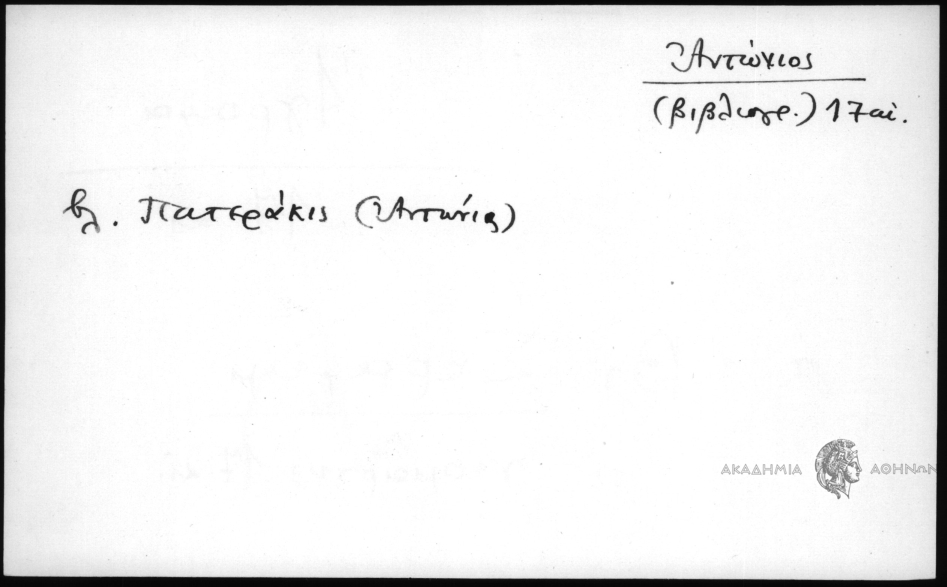 Ἀντώνιος
(βιβλιογρ.) 17 αἰ.
βλ. Πατεράκις (Ἀντώνιος)
ΑΚΑΔΗΜΙΑ ΑΘΗΝΩΝ